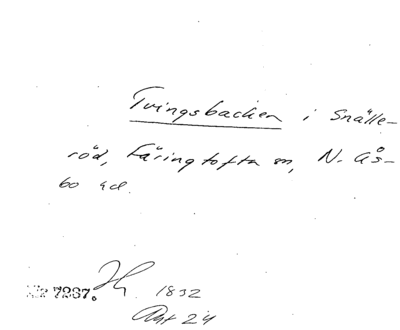 Tvingsbacken i Snälle-
röd, Färingtofta sn, N. Ås-
bo hd.
7287.
1832